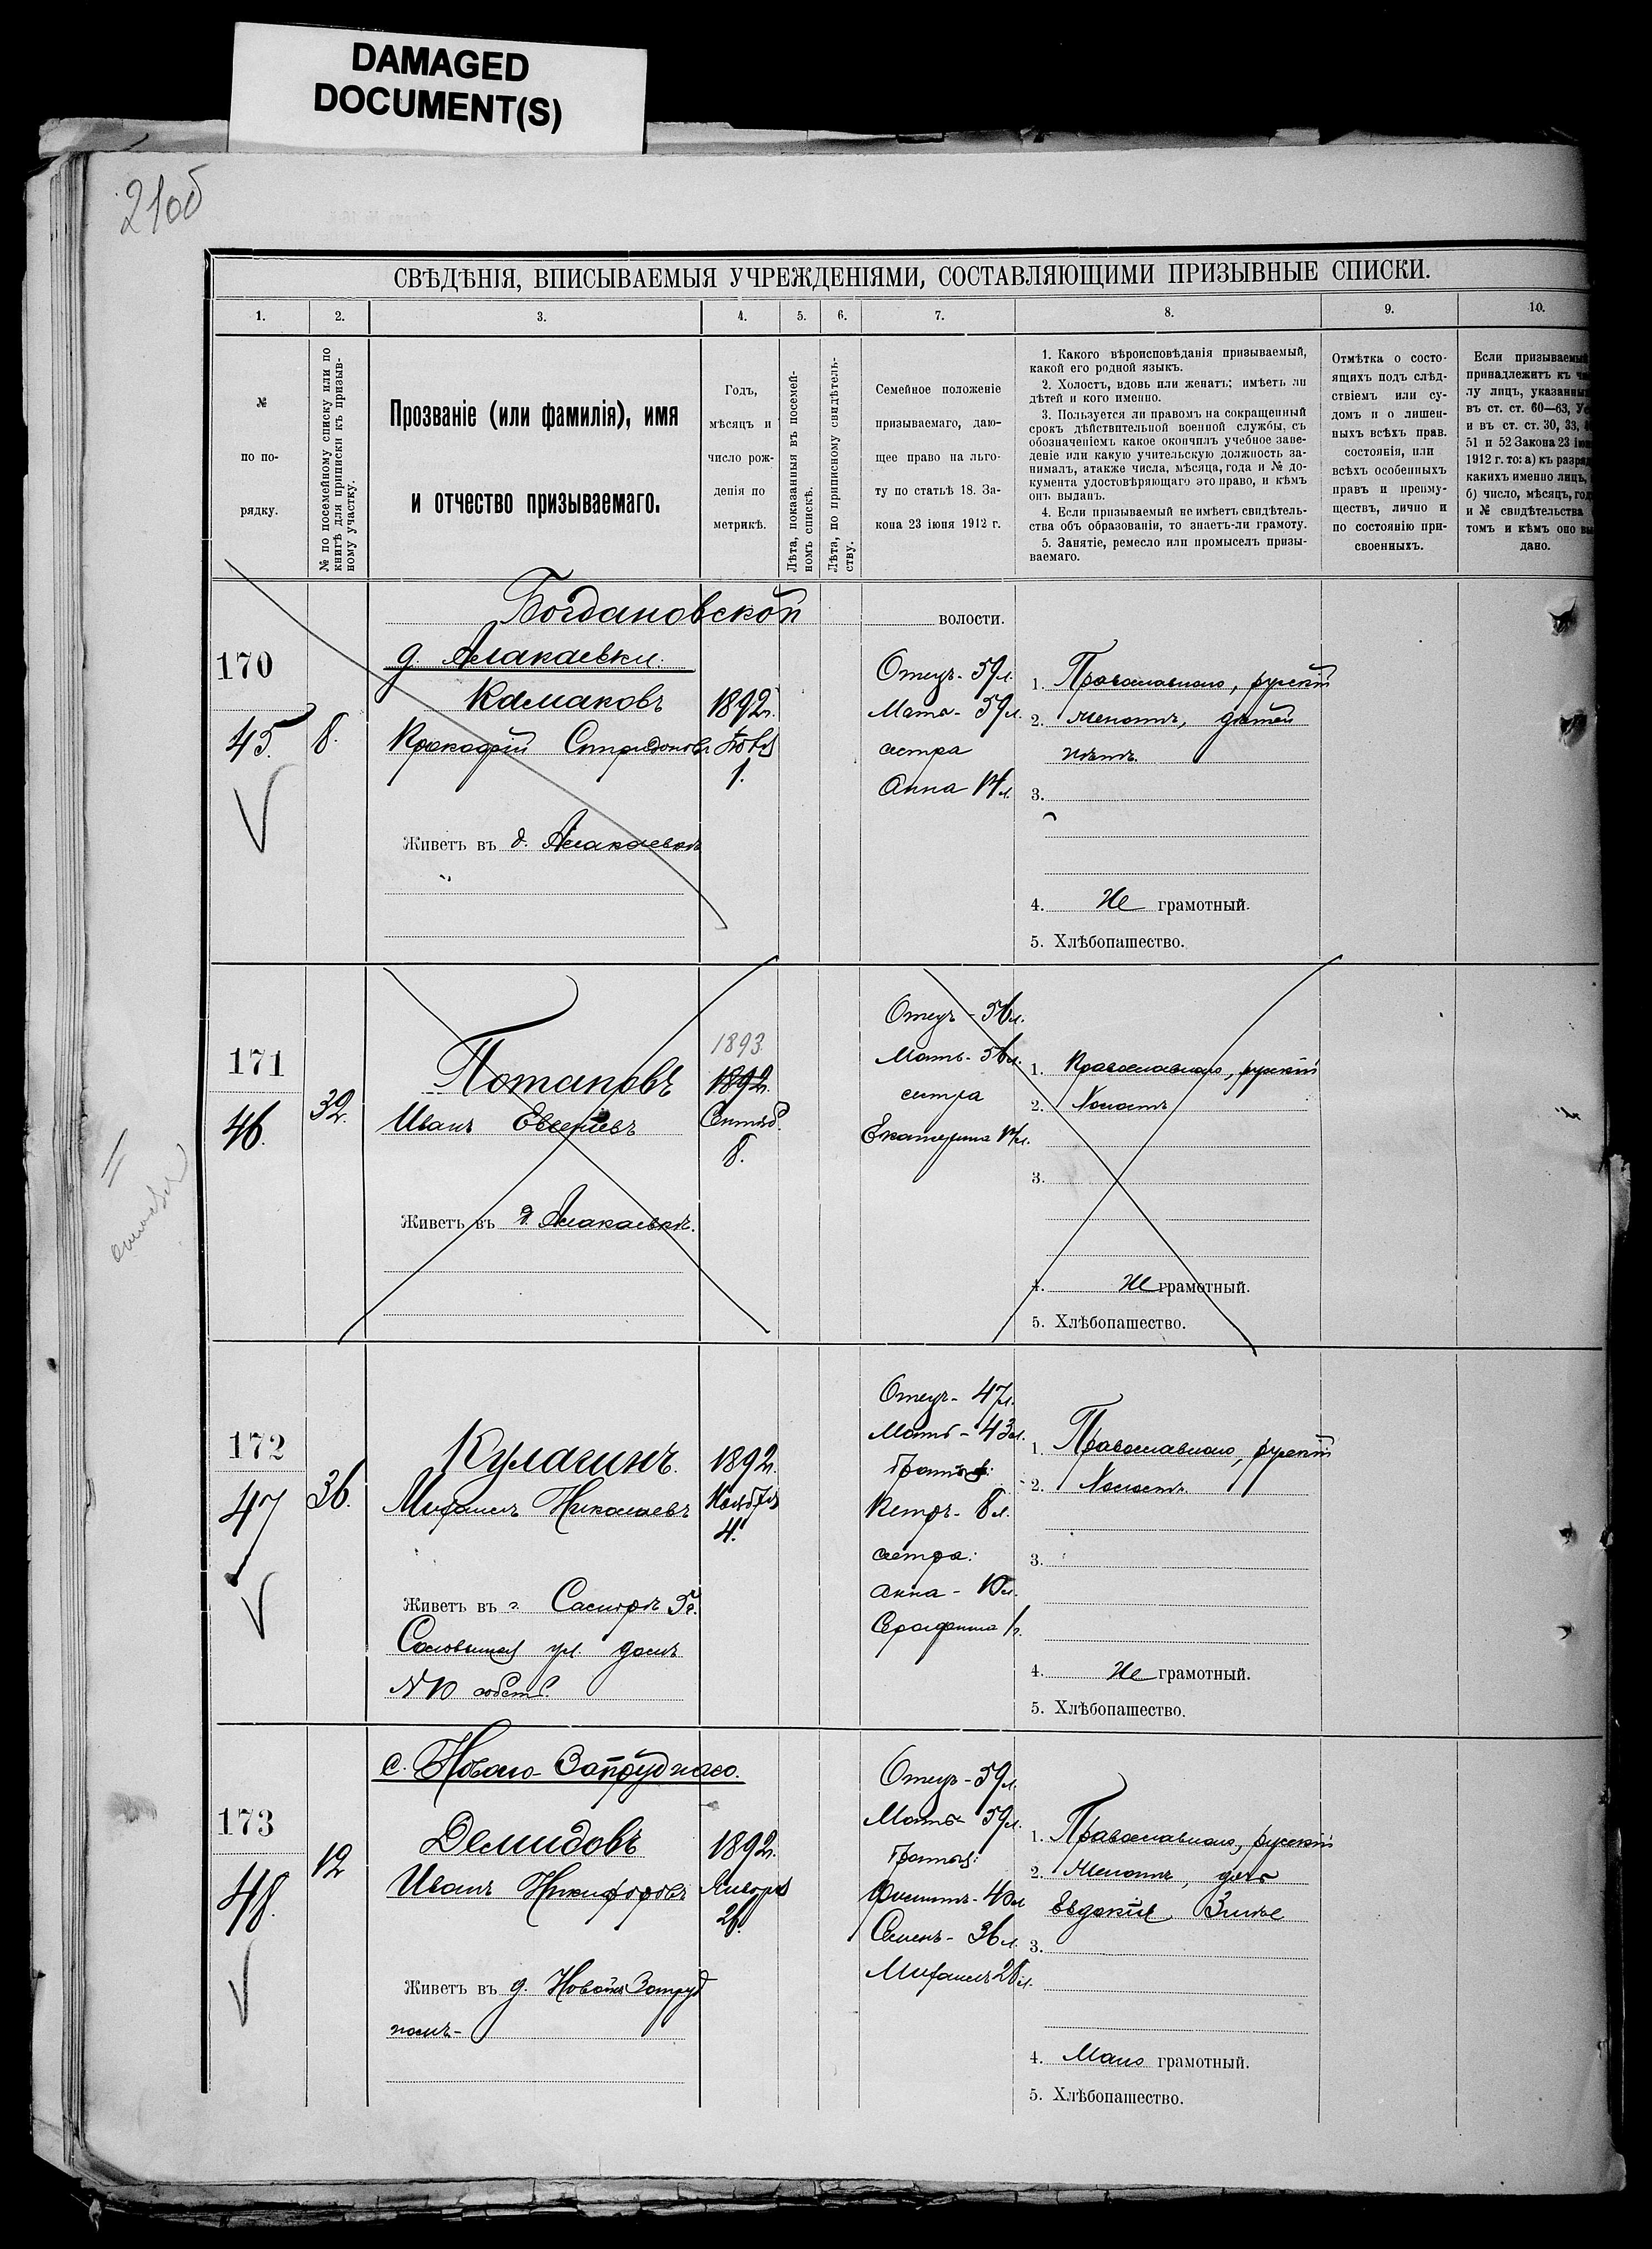 DAMAGED
DOCUMENT(S)
210б
СВѢДѢНІЯ, ВПИСЫВАЕМЫЯ УЧРЕЖДЕНІЯМИ, СОСТАВЛЯЮЩИМИ ПРИЗЫВНЫЕ СПИСКИ.
1. 2. 3. 4. 5. 6. 7. 8. 9. 10.
№
по по-
рядку.
№ по посемейному списку или по
книгѣ для приписки къ призыв-
ному участку.
Прозваніе (или фамилія), имя
и отчество призываемаго.
Годъ,
мѣсяцъ и
число рож-
денія по
метрикѣ.
Лѣта, показанныя въ посемей-
номъ спискѣ.
Лѣта, по приписному свидѣтель-
ству.
Семейное положеніе
призываемаго, даю-
щее право на льго-
ту по статьѣ 18. За-
кона 23 іюня 1912 г.
1. Какого вѣроисповѣданія призываемый,
какой его родной языкъ.
2. Холостъ, вдовъ или женатъ; имѣетъ ли
дѣтей и кого именно.
3. Пользуется ли правомъ на сокращенный
срокъ дѣйствительной военной службы, съ
обозначеніемъ какое окончилъ учебное заве-
деніе или какую учительскую должность за-
нималъ, атакже числа, мѣсяца, года и № до-
кумента удостовѣряющаго это право, и кѣмъ
онъ выданъ.
4. Если призываемый не имѣетъ свидѣтель-
ства объ образованіи, то знаетъ-ли грамоту.
5. Занятіе, ремесло или промыселъ призы-
ваемаго.
Отмѣтка о состо-
ящихъ подъ слѣд-
ствіемъ или су-
домъ и о лишен-
ныхъ всѣхъ прав.
состоянія, или
всѣхъ особенныхъ
правъ и преиму-
ществъ, лично и
по состоянію при-
своенныхъ.
Если призываемый
принадлежитъ къ
лу лицъ, указанны
въ ст. ст. 60—63,
и въ ст. ст. 30, 33,
51 и 52 Закона 23
1912 г. то: а) къ
какихъ именно лицъ,
б) число, мѣсяцъ,
и № свидѣтельства
томъ и кѣмъ оно
дано.
Богдановской волости.
д. Алакаевки.
170
45. 8.
Камаковъ
Спиридоновъ
1892г.
1.
Живетъ въ д. Алакаевкѣ
Отецъ - 59л.
Мать - 59л.
сестра
Анна 14л.
1. Православнаго, русскій
2. Женатъ, дѣтей
нѣтъ.
3.
4. Не грамотный.
5. Хлѣбопашество.
171
46. 32.
Потаповъ
Иванъ Евсеевъ
1893
1892г.
Сентяб.
8.
Живетъ въ д. Алакаевкѣ.
Отецъ - 56л.
Мать - 56л.
сестра
Екатерина 14л.
1. Православнаго, русскій
2. Холостъ
3.
4. Не грамотный.
5. Хлѣбопашество.
172
47 36.
Кулагинъ.
Михаилъ Николаевъ
1892г.
Ноября
4.
Живетъ въ г. Самарѣ 5ч.
ул. домъ
N 10 собств.
Отецъ - 47л.
Мать - 43л.
Братъ:
Петръ - 8л.
сестра:
Анна - 10л.
Серафима 1г.
1. Православнаго, русскій
2. Холостъ.
3.
4. Не грамотный.
5. Хлѣбопашество.
с. Новаго-Запруднаго.
173
48. 12
Демидовъ
Иванъ Никифоровъ
1892г.
Января
26.
Живетъ въ д. Новомъ Запруд
номъ-
Отецъ - 59л.
Мать - 59л.
Братья:
Филиппъ - 40л
Семенъ - 36л.
Михаилъ 28л.
1. Православнаго, русскій
2. Женатъ, дочь
Евдокія
3.
4. Мало грамотный.
5. Хлѣбопашество.